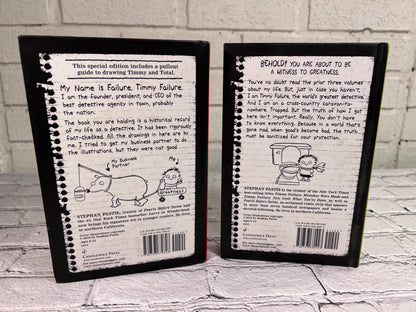 This special edition includes a pullout
guide to drawing Timmy and Total.
My Name is Failure. Timmy Failure.
I am the founder, president, and CEO of the
best detective agency in town, probably
the nation.
The book you are holding is a historical record
of my life as a detective. It has been rigorously
fact-checked. All the drawings in here are by
me. I tried to get my business partner to do
the illustrations, but they were not good.
My Business
Partner
Me
Greatness
STEPHAN PASTIS is the creator of Pearls Before Swine and
in northern California.
CANDLEWICK PRESS
BEHOLD! YOU ARE ABOUT TO BE
A WITNESS TO GREATNESS.
You've no doubt read the prior three volumes
about my life. But, just in case you haven't,
I am Timmy Failure, the world's greatest detective.
And I am on a cross-country caravan-to-
nowhere. Trapped. But the truth of how I got
here isn't important. Really. You don't have
to know everything. Because in a world that's
gone mad, when good's become bad, the truth
must be sanitized for your protection.
STEPHAN PASTIS is the creator of the New York Times
best-selling titles Timmy Failure: Mistakes Were Made and
CANDLEWICK PRESS